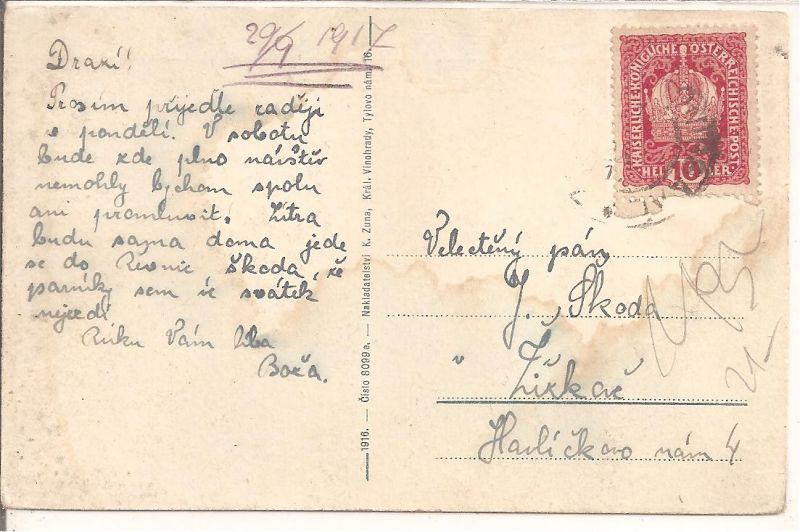 29/9 1917
Drazí!!
Prosím přijedte raději
v pondělí. V sobotu
bude zde plno návštěv
nemohly bychom spolu
ani promluvit. Zítra
budu sama doma jede
se do Řevnic škoda, že
parníky sem ve svátek
nejedí
Ruku Vám líbá
Boža.
1916. — Číslo 8099 a. — Nakladatelství K. Zuna, Král. Vinohrady, Tylovo nám. 16.
KAISERLICHE KÖNIGLICHE ÖSTERREICHISCHE POST
HELLER
10
Velectěný pán
J. Škoda
v
Žižkov
Havlíčkovo nám 4